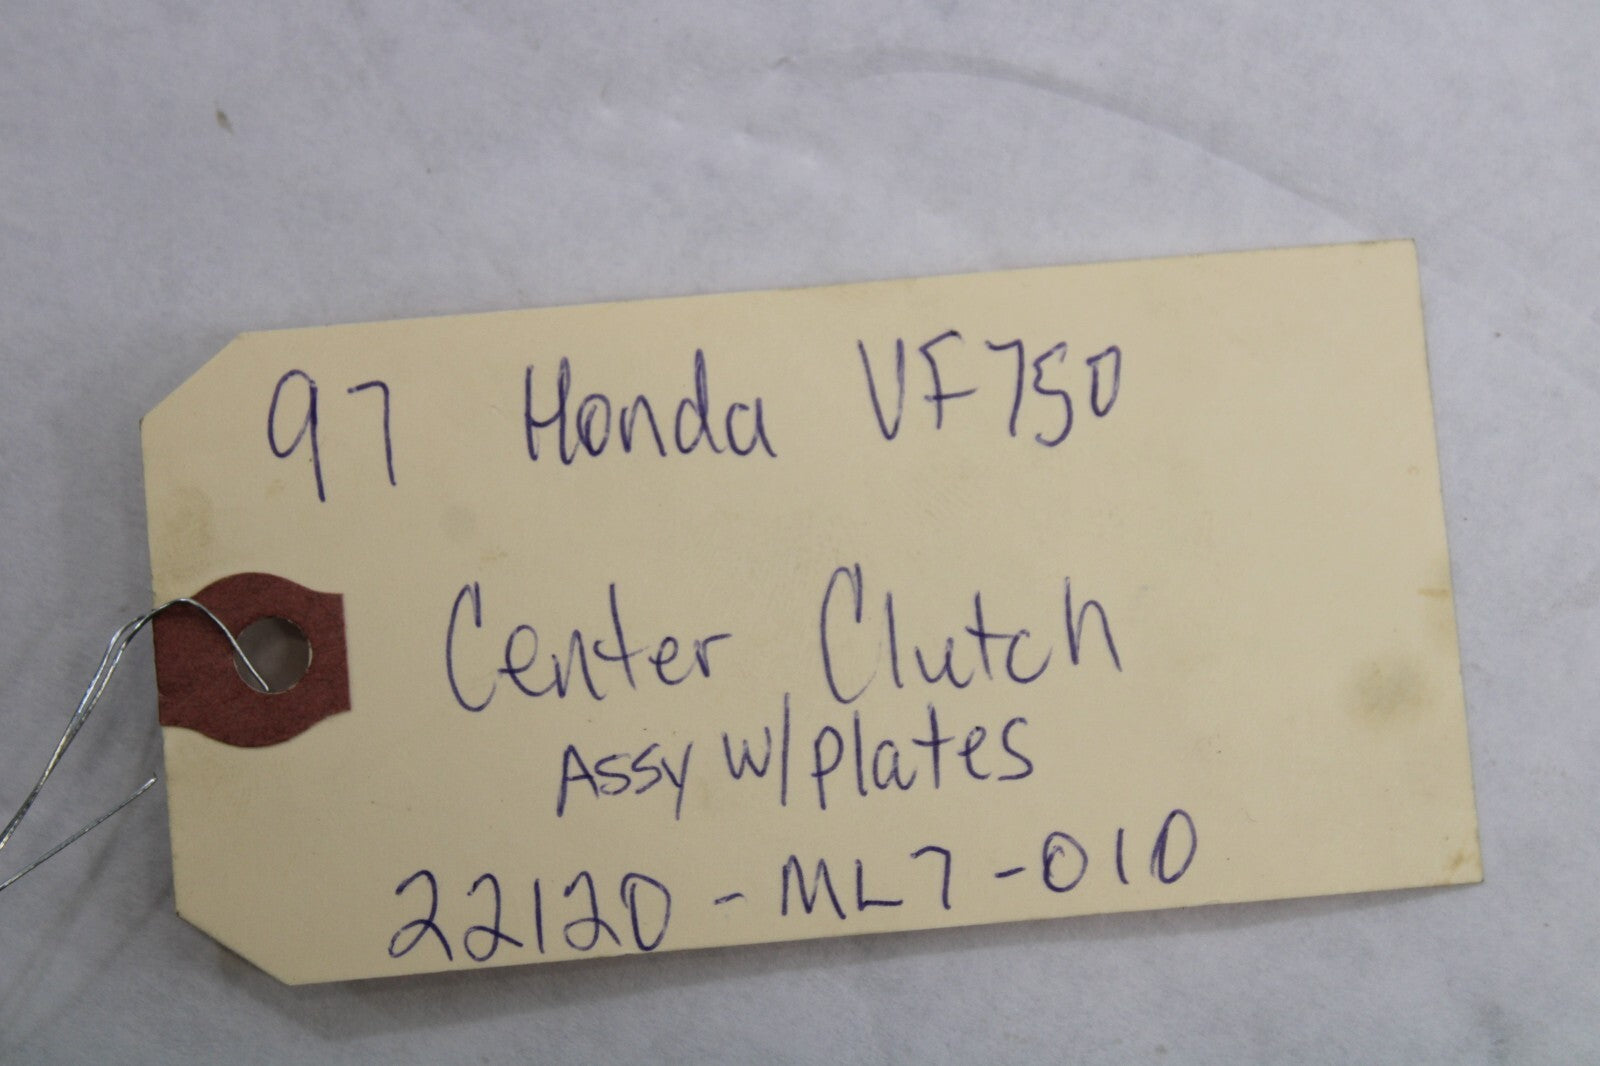 97 Honda VF750
Center Clutch
Assy w/plates
22120-ML7-010